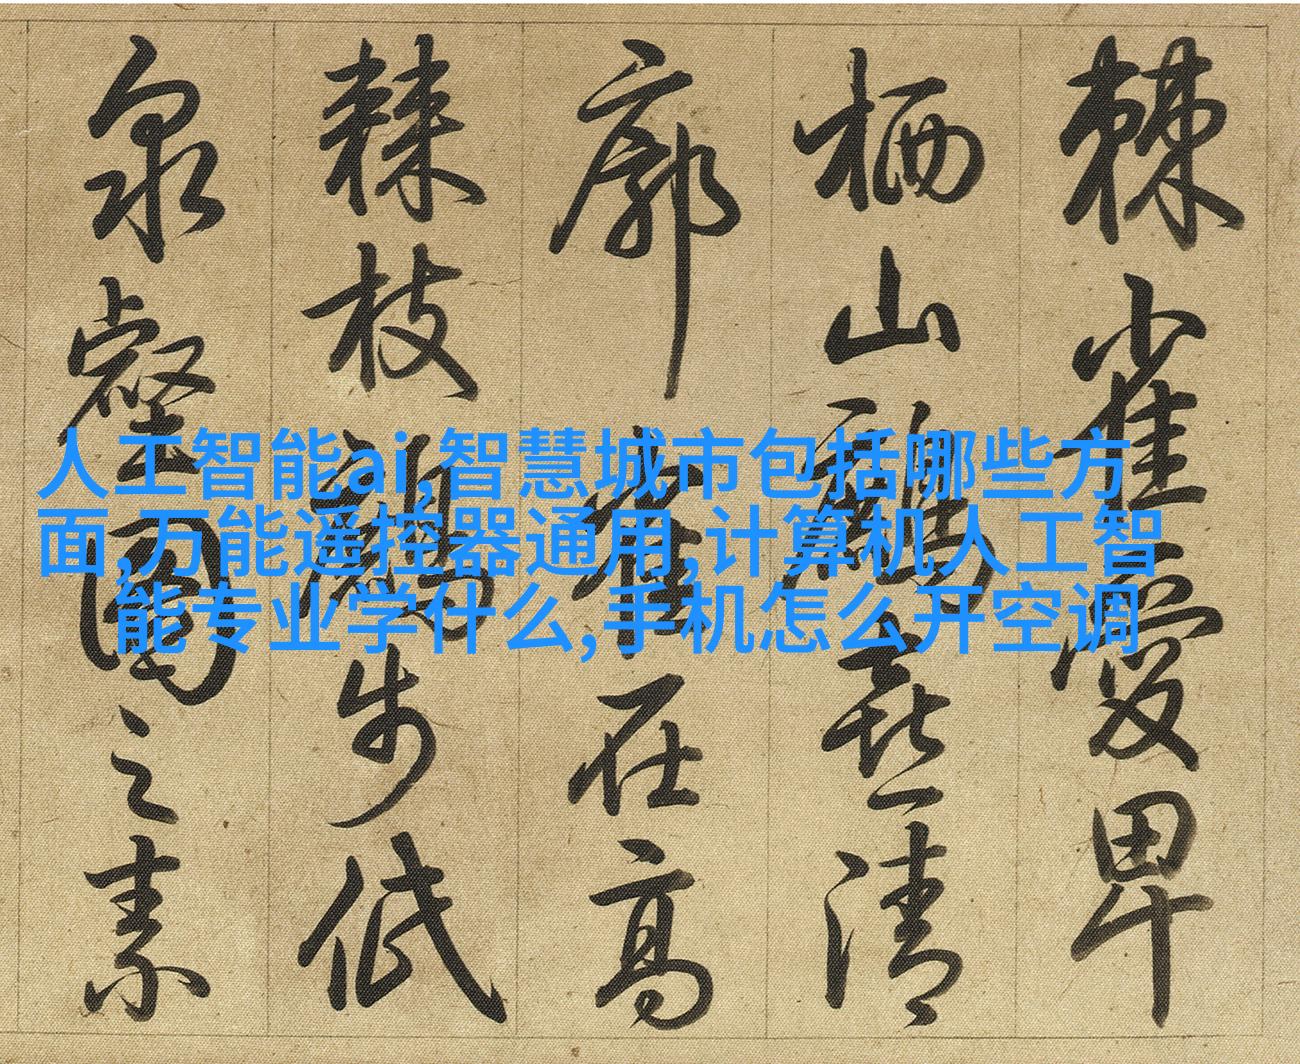 棘雀愛卑
栖山喜清
廓雀在高
棘枝步低
泉壑圖之素
人工智能ai,智慧城市包括哪些方
面,万能遥控器通用,计算机人工智
能专业学什么,手机怎么开空调